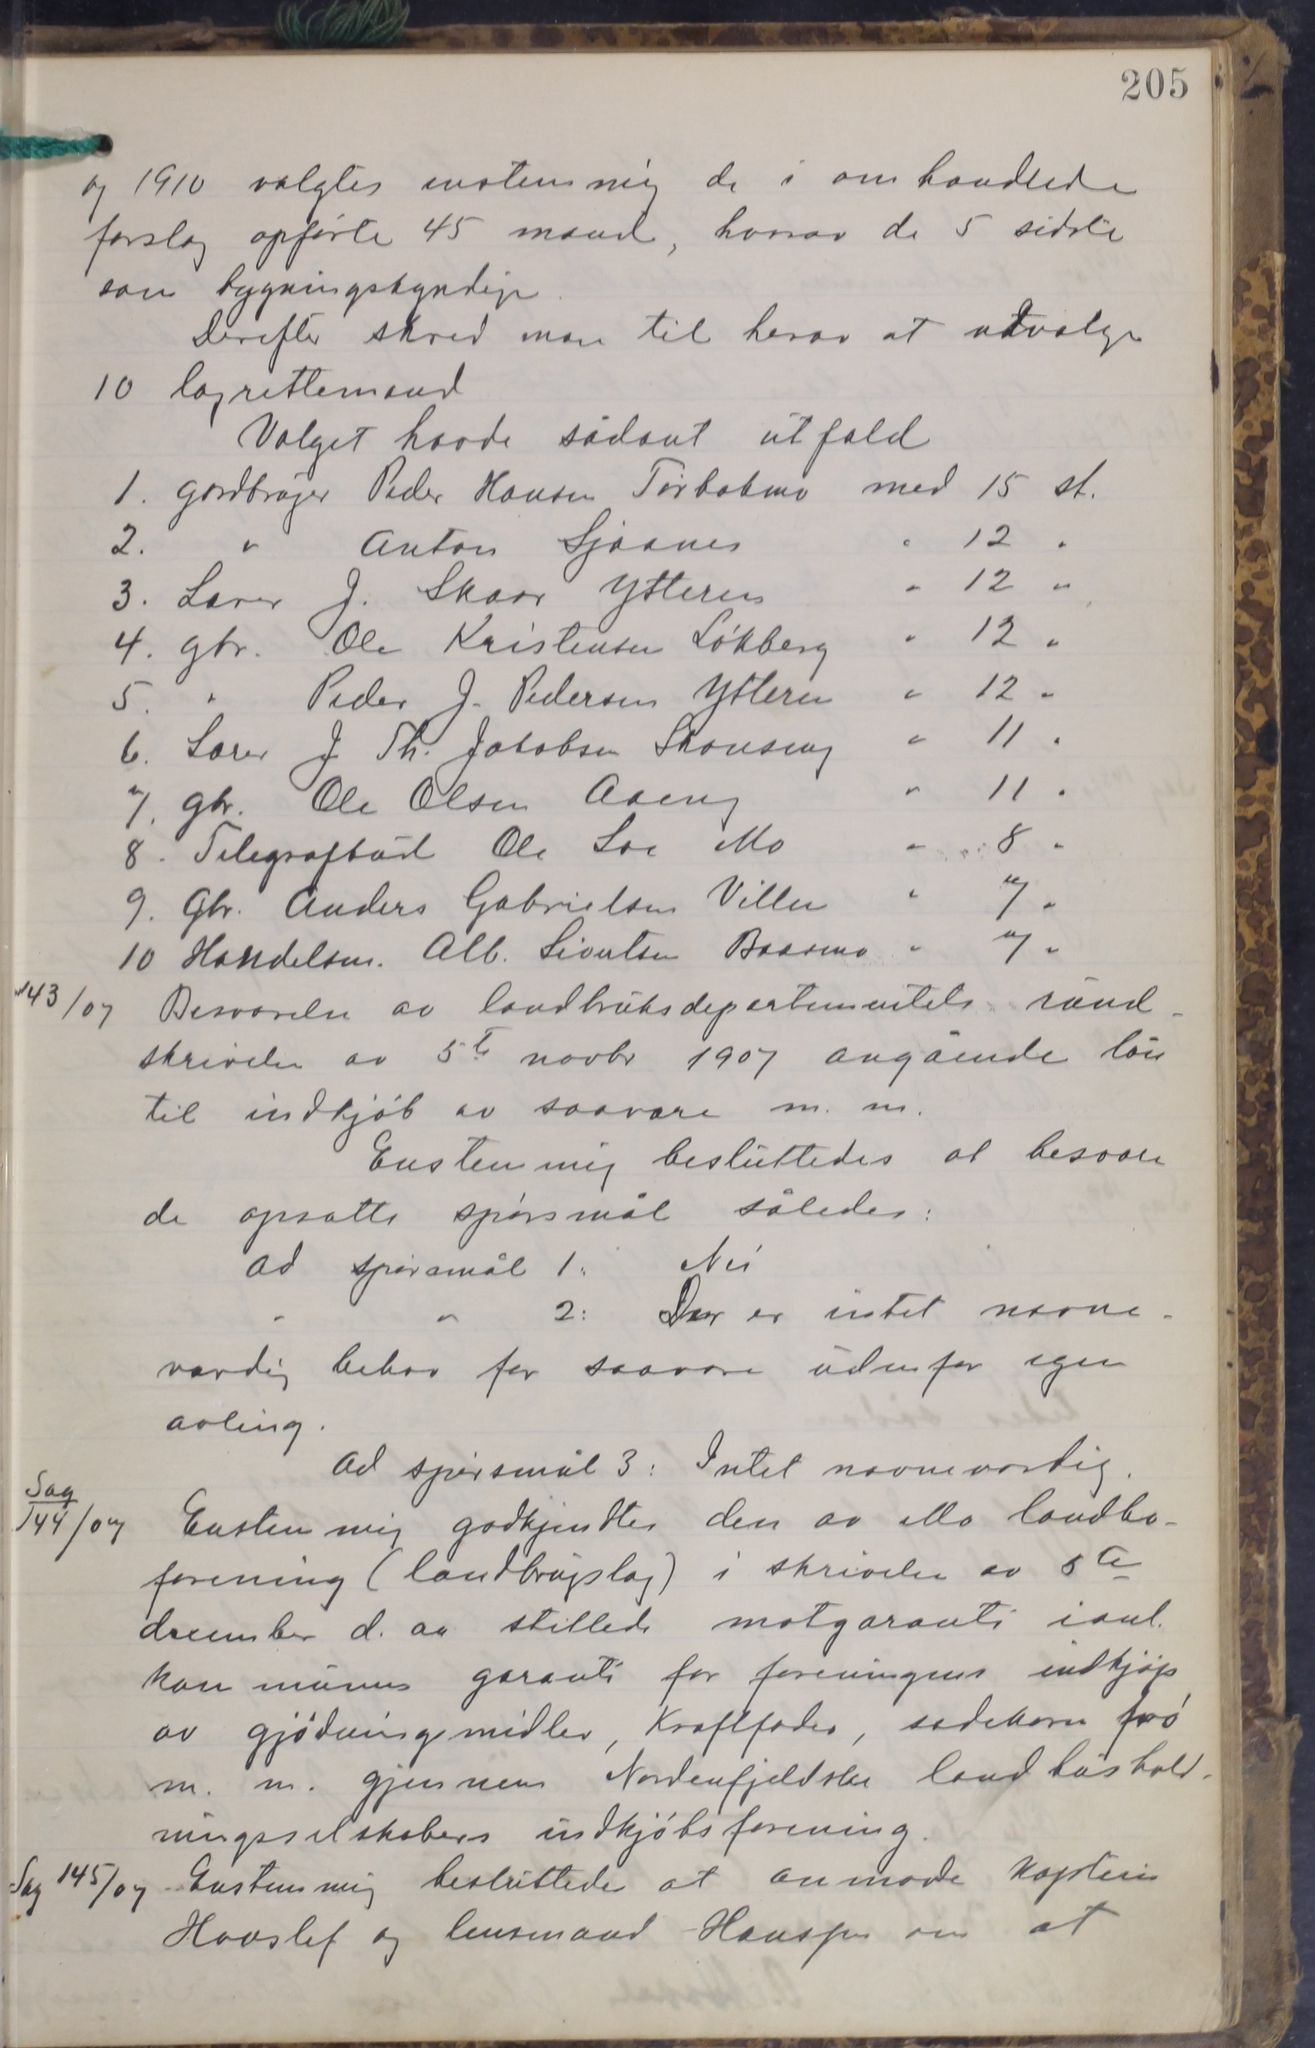 205
og 1910 valgtes enstemmig de i omhandlede
forslag opførte 45 mænd, hvorav de 5 sidste
som bygningskyndige.
Derefter skred man til herav at utvalge
10 lagrettemænd
Valget havde sådant utfald
1. gårdbruger Peder Hansen Torbakmo med 15 st.
2. " Anton Sjaanes " 12 "
3. Lærer J. Skaar Ytteren " 12 "
4. gbr. Ole Kristensen Løkberg " 12 "
5. " Peder J. Pedersen Ytteren " 12 "
6. Lærer J Th. Jakobsen Skonseng " 11 "
7. gbr. Ole Olsen Aaeng " 11 "
8. Telegrafbud Ole Loe Mo " 8 "
9. Gbr. Anders Gabrielsen Villen " 7 "
10 Handelsm. Alb. Sivertsen Baasmo " 7 "
143/07 Besvarelse av landbruksdepartementets rund-
skrivelse av 5te novbr 1907 angående lån
til indkjøb av saavare m. m.
Enstemmig besluttedes at besvare
de opsatte spørsmål således:
Ad spørsmål 1: Nei
" " 2: Der er intet nævne-
værdig behov for saavare udenfor egen
avling.
Ad spørsmål 3: Intet nævneværdig.
Sag
144/07 Enstemmig godkjendtes den av Mo landbo-
forening (landbrugslag) i skrivelse av 5te
december d. aa stillede motgaranti i anl.
kommunens garanti for foreningens indkjøp
av gjødningsmidler, Kraftfoder, sædekorn frø
m. m. gjennem Nordenfjeldske landhushold-
ningsselskabers indkjøbsforening.
Sag 145/07 Enstemmig besluttedes at anmode kaptein
Hovslef og lensmand Hansen om at